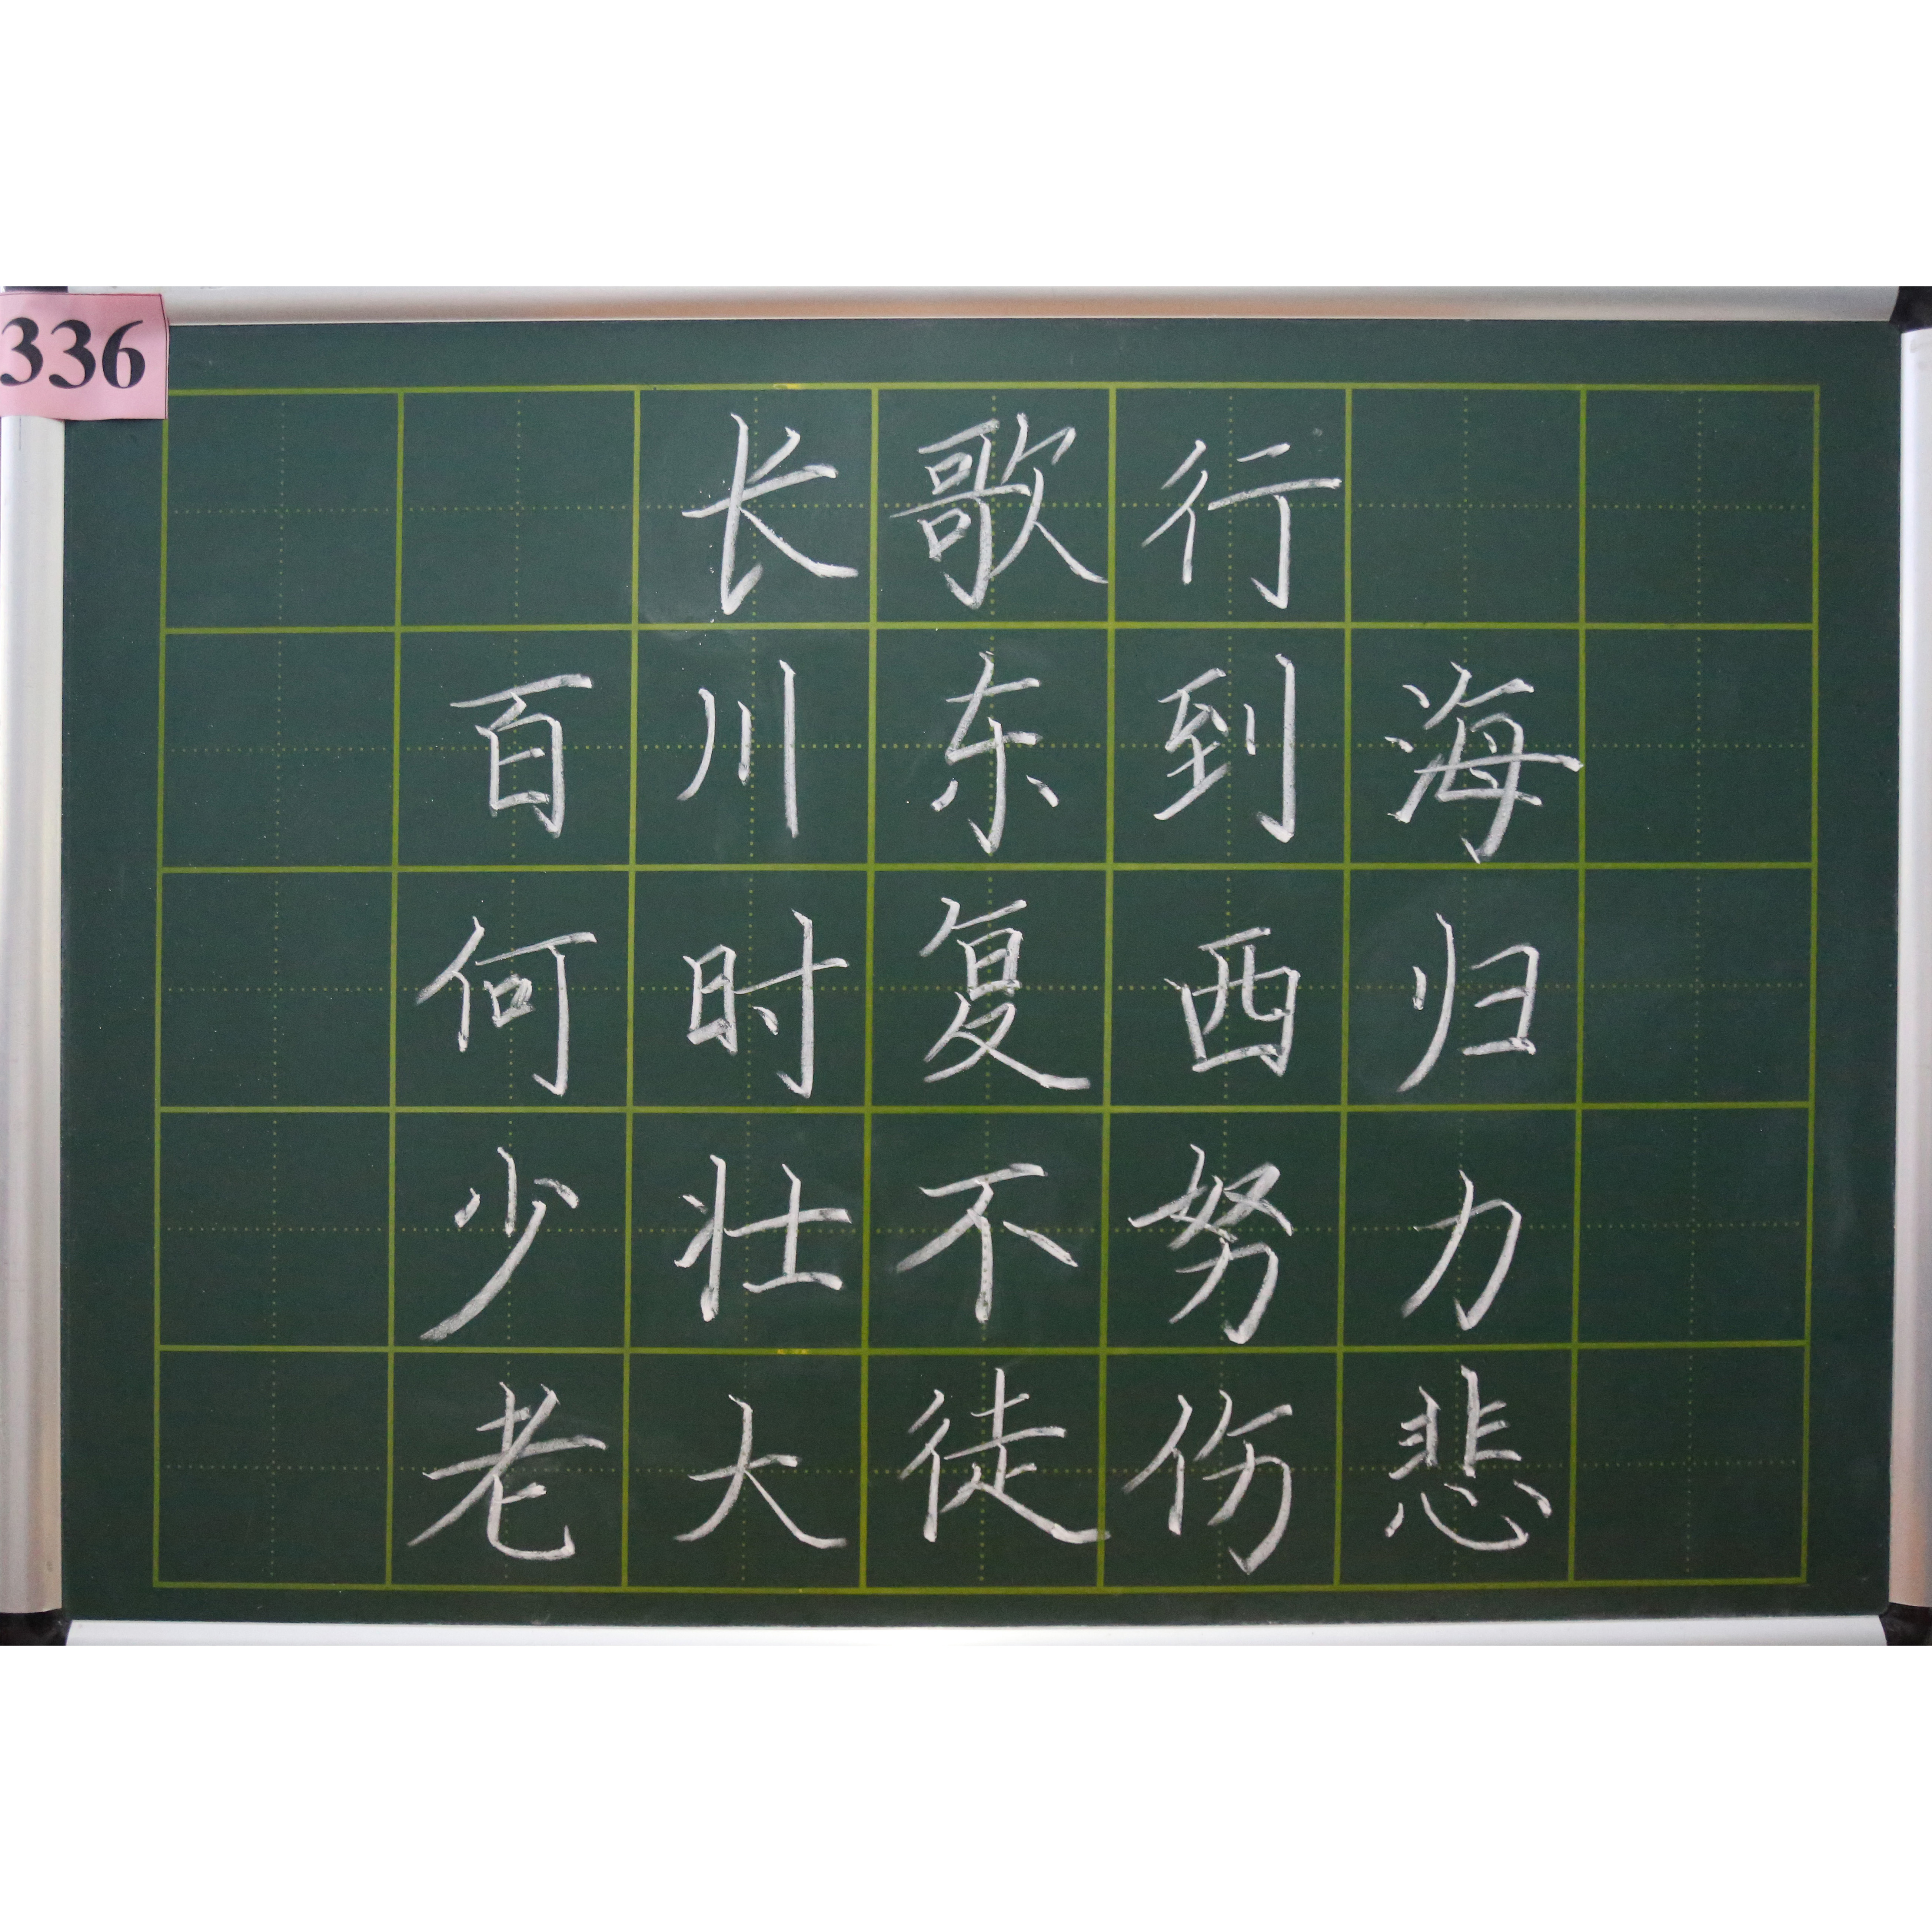 336
长歌行
百川东到海
何时复西归
少壮不努力
老大徒伤悲